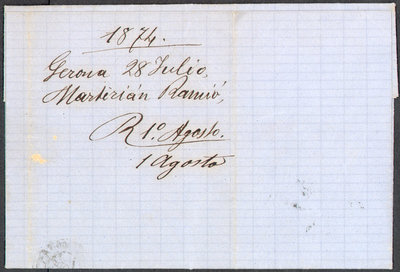 1874.
Gerona 28 Julio,
Martirián Ramió,
R 1º Agosto.
1 Agosto